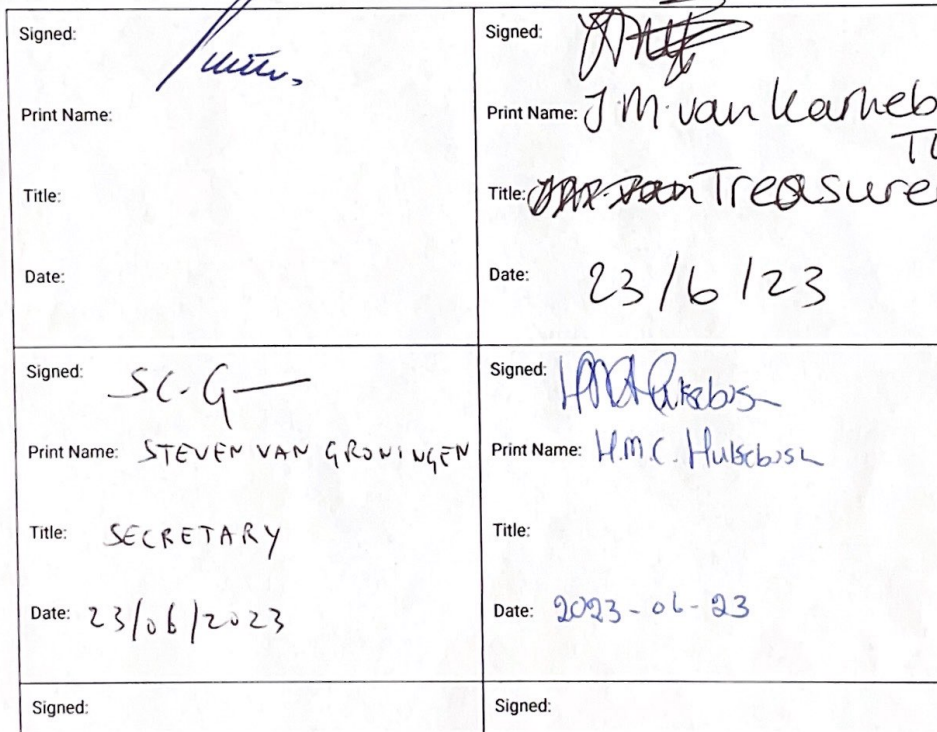 Signed:
Print Name:
Title:
Date:
Signed:
Print Name: J.M. van Karneb
Title: Treasure
Date: 23/6/23
Signed: SC.G
Print Name: STEVEN VAN GRONINGEN
Title: SECRETARY
Date: 23/06/2023
Signed: HMC Hulsebosch
Print Name: H.M.C. Hulsebosch
Title:
Date: 2023-06-23
Signed:
Signed: